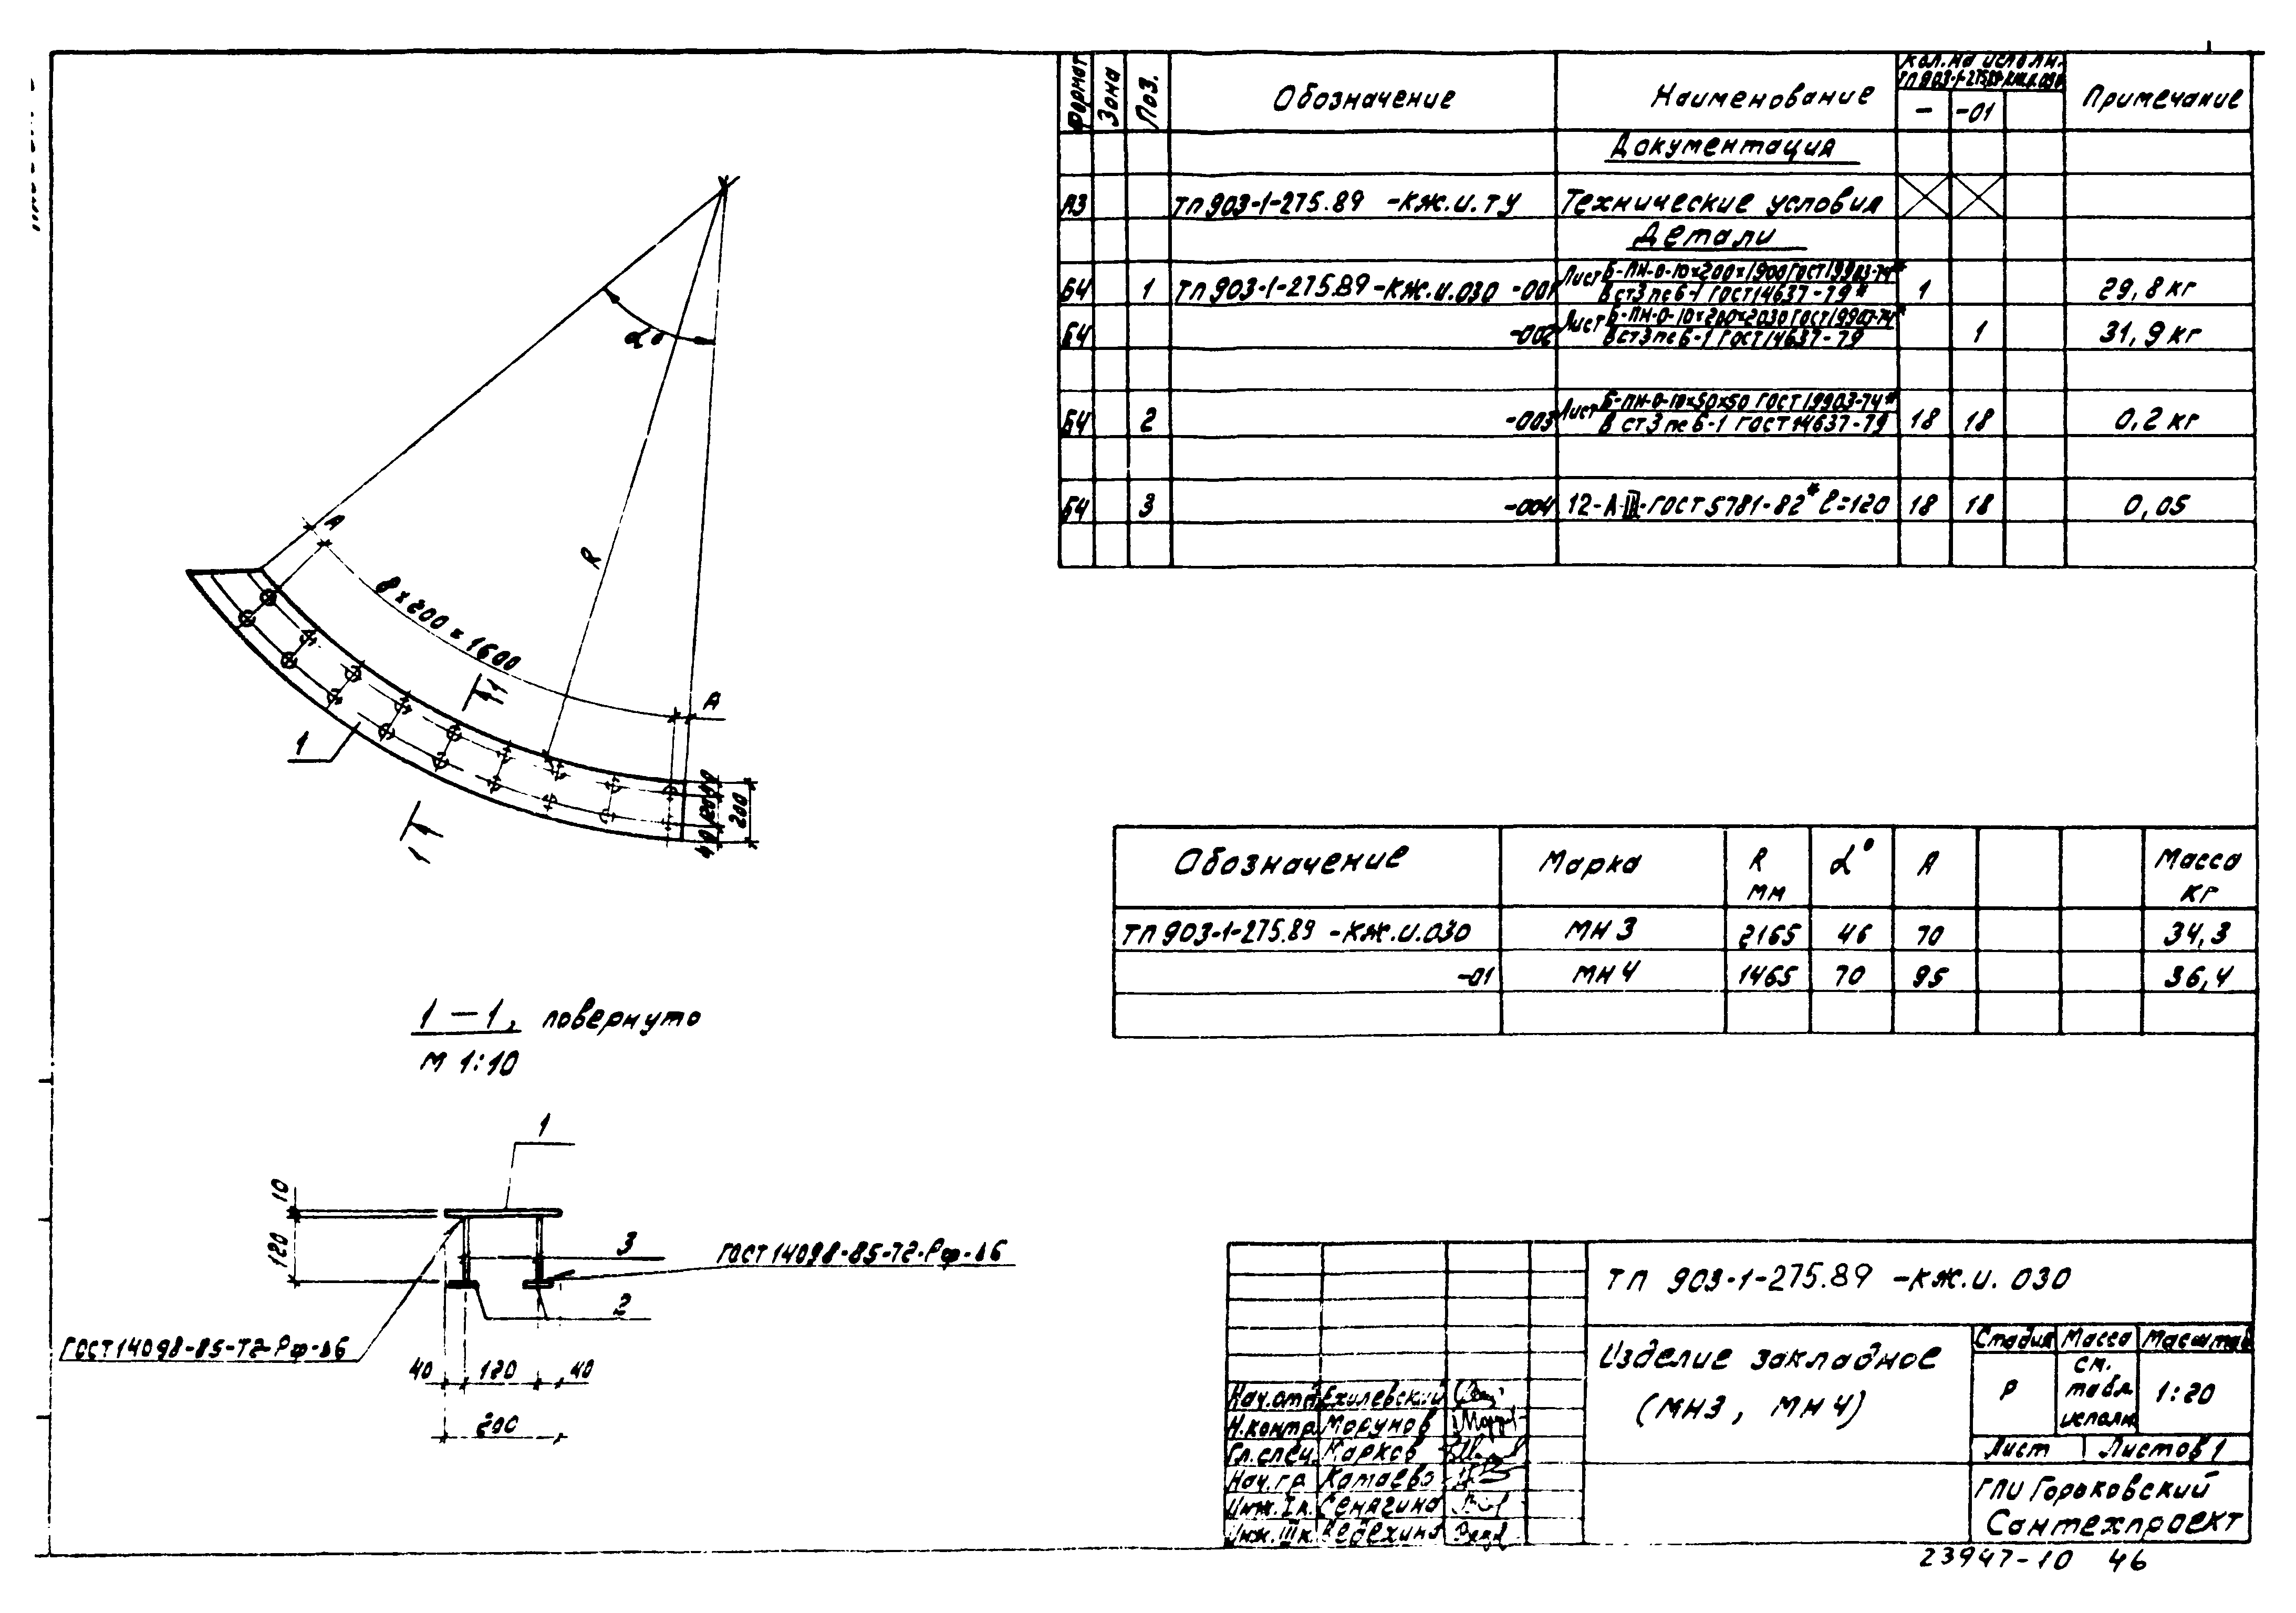 Формат Зона Поз. Обозначение Наименование Кол. на исполн. ТП 903-1-275.89-КЖ.И.030 Примечание
– -01
Документация
А3 ТП 903-1-275.89 -КЖ.И.ТУ Технические условия
Детали
Б4 1 ТП 903-1-275.89-КЖ.И.030 -001 Лист Б-ПН-О-10х200х1900 ГОСТ 19903-74* 1 29,8 кг
ВСт3пс6-1 ГОСТ 14637-79*
Б4 -002 Лист Б-ПН-О-10х200х2030 ГОСТ 19903-74* 1 31,9 кг
ВСт3пс6-1 ГОСТ 14637-79
Б4 2 -003 Лист Б-ПН-О-10х50х50 ГОСТ 19903-74* 18 18 0,2 кг
ВСт3пс6-1 ГОСТ 14637-79
Б4 3 -004 12-А-III-ГОСТ 5781-82* ℓ=120 18 18 0,05
α°
А
R
8 х 200 = 1600
А
1
1
1
40 120 40
200
Обозначение Марка R мм α° А Масса кг
ТП 903-1-275.89 -КЖ.И.030 МН 3 2165 46 70 34,3
-01 МН 4 1465 70 95 36,4
1 – 1, повернуто
М 1:10
1
10
120
3
ГОСТ 14098-85-Т2-Рф-
2
ГОСТ 14098-85-Т2-Рф-
40 120 40
200
ТП 903-1-275.89 -КЖ.И. 030
Изделие закладное
(МН3, МН4)
Стадия Масса Масштаб
Р см. табл. исполн. 1:20
Лист Листов 1
ГПИ Горьковский
Сантехпроект
Нач.отд. Ехилевский
Н.контр. Морунов
Гл.спец. Марков
Нач.гр. Катаева
Инж. I к. Сенягина
Инж. III к. Ведехина
23947-10 46